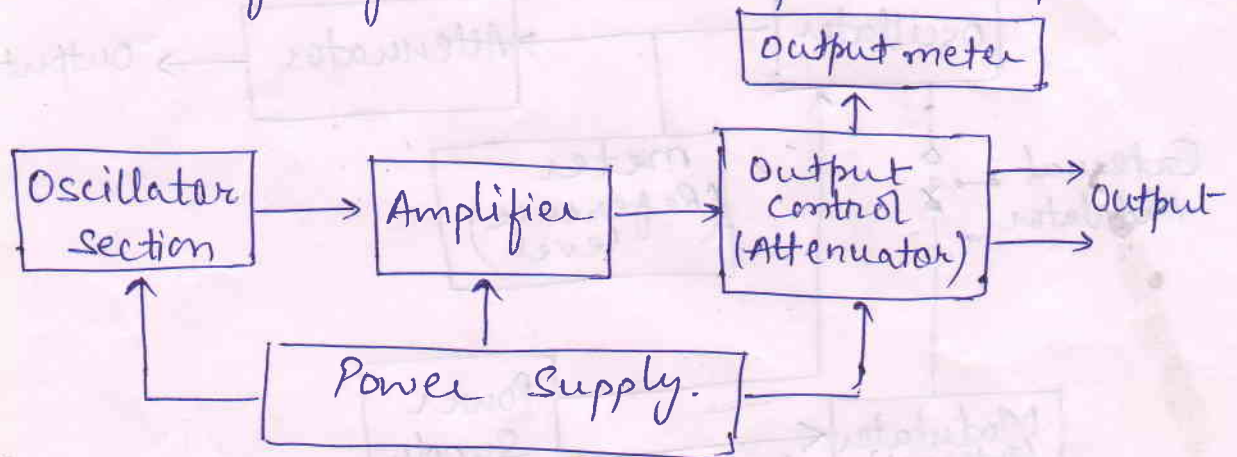 Output meter
Oscillator
section
Amplifier
Output
control
(Attenuator)
Output
Power Supply.